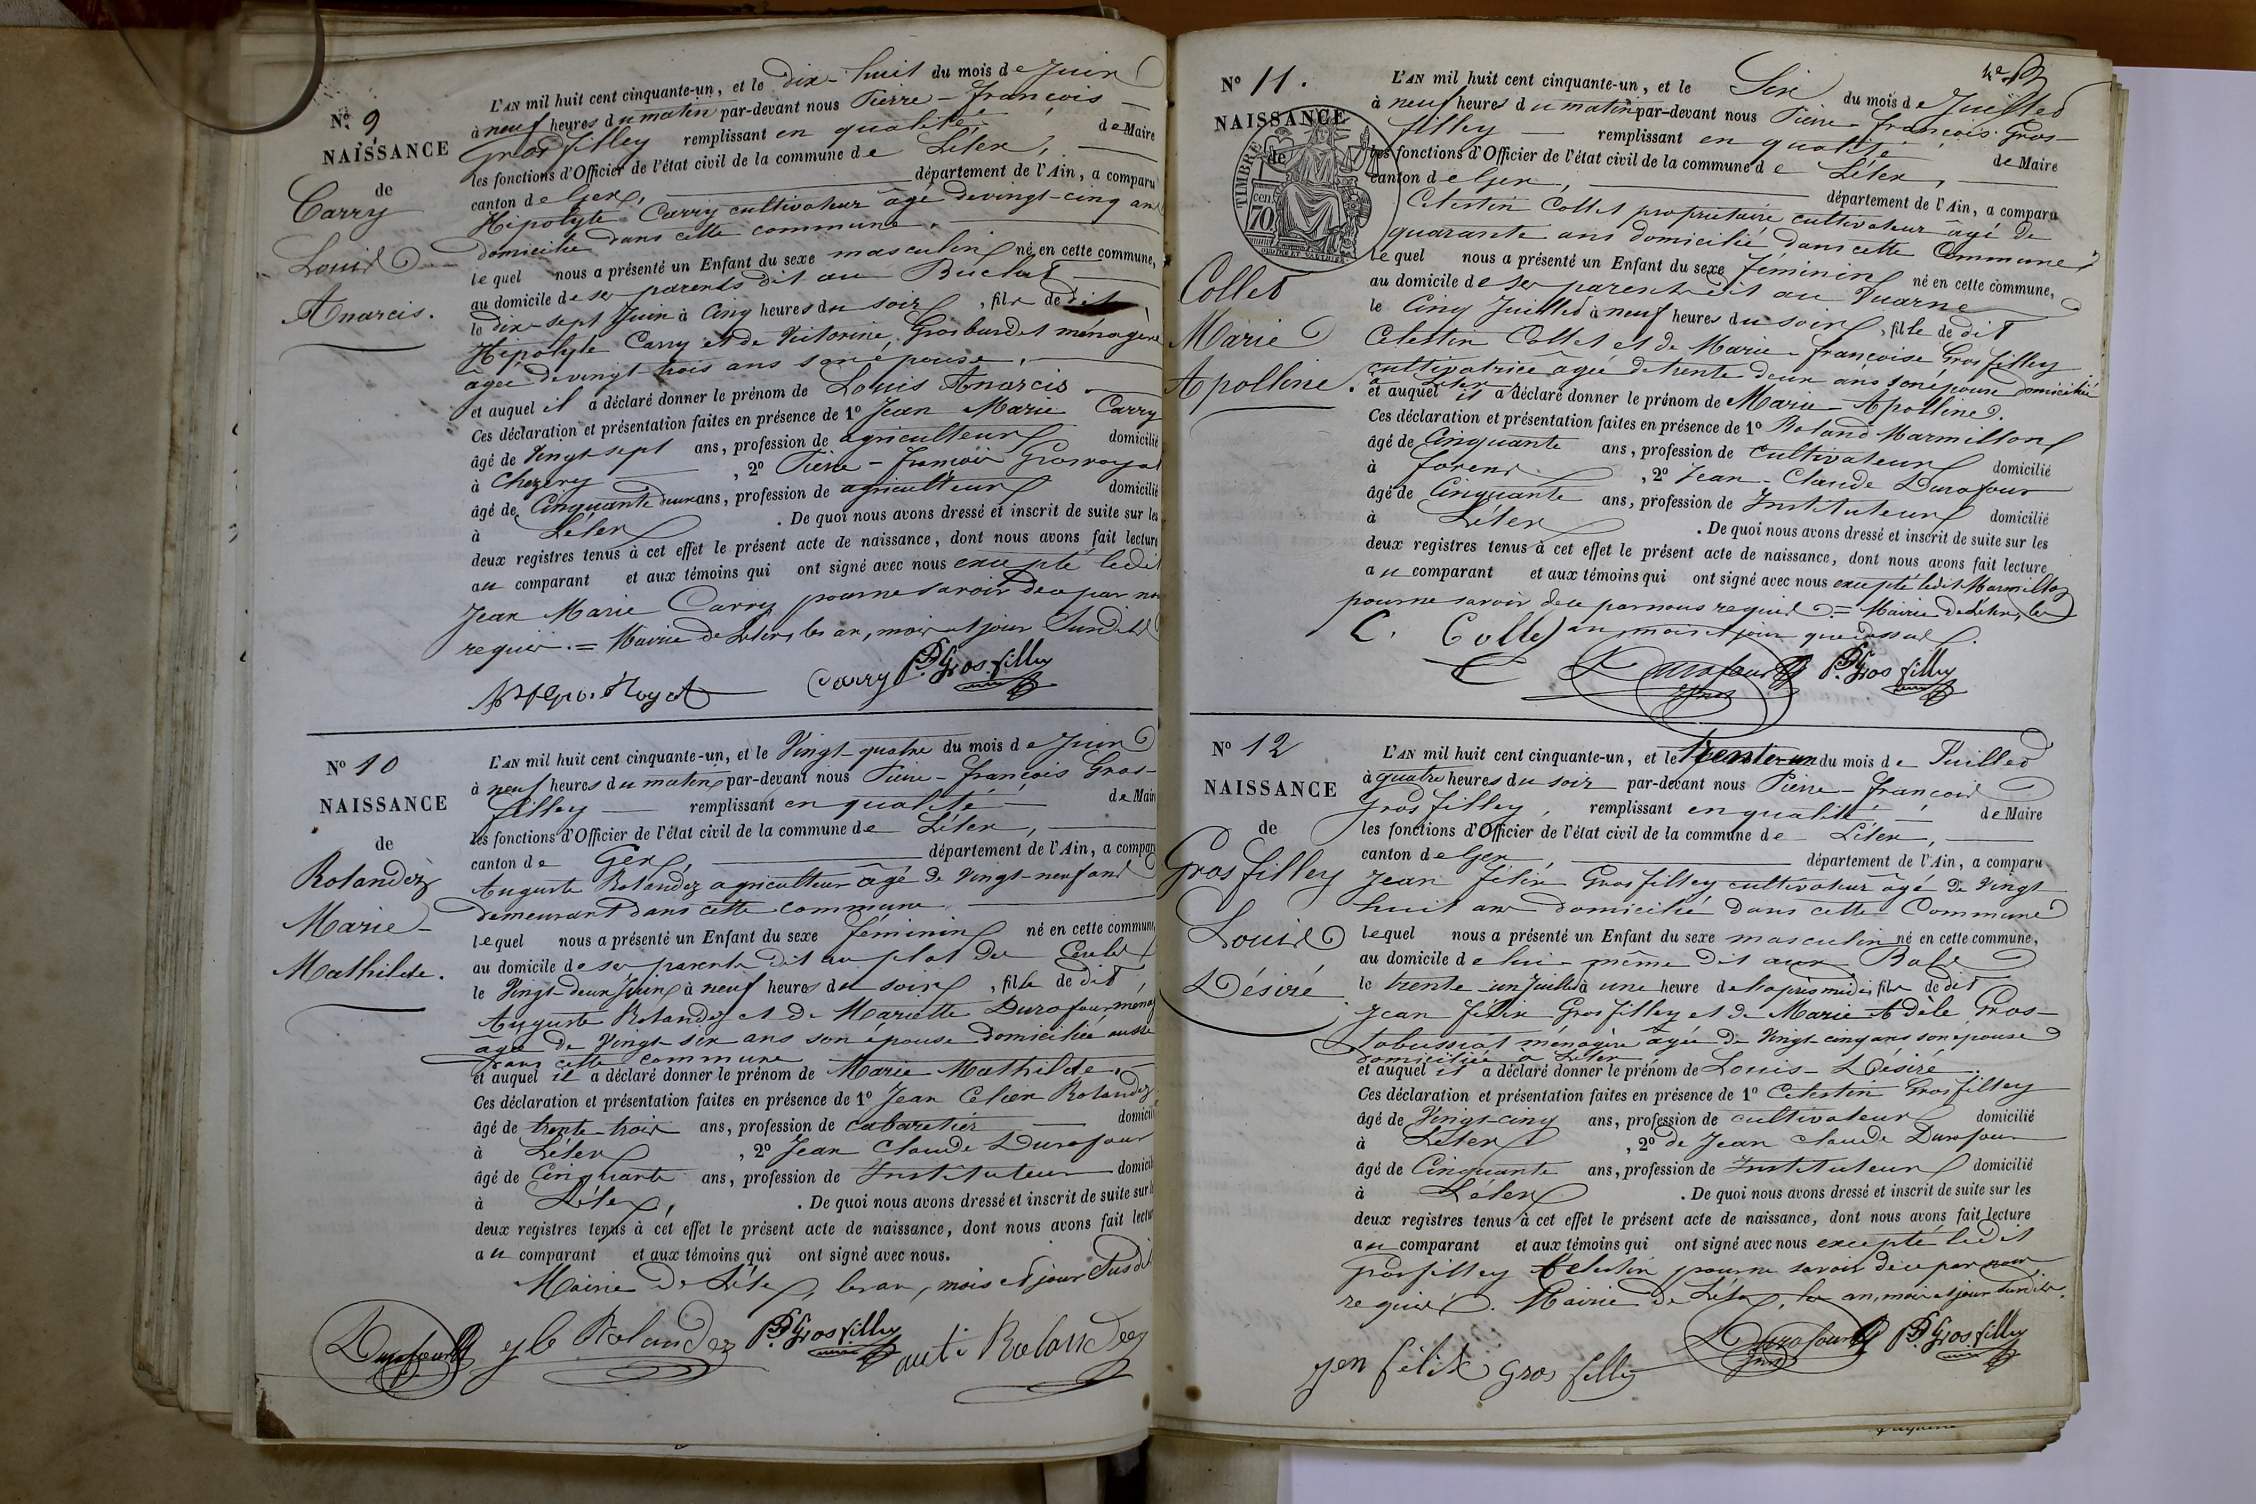 Nº 9
NAISSANCE
de
Carry
Louis
Anarcis.
L'AN mil huit cent cinquante-un, et le dix-huit du mois de Juin
à neuf heures du matin par-devant nous Pierre-françois
Grosfilley remplissant en qualité de Maire
les fonctions d'Officier de l'état civil de la commune de Lélex,
canton de Gex, département de l'Ain, a comparu
Hipolyte Carry cultivateur âgé de vingt-cinq ans
domicilié dans cette commune.
lequel nous a présenté un Enfant du sexe masculin né en cette commune,
au domicile de ses parents dit au
le dix-sept Juin à Cinq heures du soir, fils de dit
Hipolyte Carry et de Victorine Grosburdet ménagère
âgée de vingt trois ans son épouse,
et auquel il a déclaré donner le prénom de Louis Anarcis
Ces déclaration et présentation faites en présence de 1º Jean Marie Carry
âgé de Vingt sept ans, profession de agriculteur domicilié
à Chezery, 2º Pierre-françois Grosroyat
âgé de Cinquante deux ans, profession de agriculteur domicilié
à Lélex. De quoi nous avons dressé et inscrit de suite sur les
deux registres tenus à cet effet le présent acte de naissance, dont nous avons fait lecture
au comparant et aux témoins qui ont signé avec nous excepté ledit
Jean Marie Carry pour ne savoir de ce par nous
requis.= Mairie de Lélex, les an, mois et jour Susdits
Carry P.F. Grosfilley
Nº 10
NAISSANCE
de
Rolandez
Marie-
Mathilde.
L'AN mil huit cent cinquante-un, et le Vingt-quatre du mois de Juin
à neuf heures du matin par-devant nous Pierre-françois Gros-
filley remplissant en qualité de Maire
les fonctions d'Officier de l'état civil de la commune de Lélex,
canton de Gex, département de l'Ain, a comparu
Auguste Rolandez agriculteur âgé de Vingt-neuf ans
demeurant dans cette commune
lequel nous a présenté un Enfant du sexe féminin né en cette commune,
au domicile de ses parents dit au plat du
le Vingt-deux Juin à neuf heures du soir, fille de dit
Auguste Rolandez et de Mariette Durafour ménag
âgée de Vingt-six ans son épouse domiciliée aussi
dans cette commune
et auquel il a déclaré donner le prénom de Marie Mathilde.
Ces déclaration et présentation faites en présence de 1º Jean Rolandez
âgé de trente-trois ans, profession de cabaretier domicilié
à Lélex, 2º Jean Claude Durafour
âgé de Cinquante ans, profession de Instituteur domicilié
à Lélex,. De quoi nous avons dressé et inscrit de suite sur les
deux registres tenus à cet effet le présent acte de naissance, dont nous avons fait lecture
au comparant et aux témoins qui ont signé avec nous.
Mairie de Lélex, les an, mois et jour Susdits
Durafour Rolandez P.F. Grosfilley Rolandez
Nº 11.
NAISSANCE
de
TIMBRE
cen
70
Collet
Marie
Apolline.
L'AN mil huit cent cinquante-un, et le Six du mois de Juillet
à neuf heures du matin par-devant nous Pierre-françois Gros-
filley remplissant en qualité de Maire
les fonctions d'Officier de l'état civil de la commune de Lélex,
canton de Gex, département de l'Ain, a comparu
Celestin Collet propriétaire cultivateur âgé de
quarante ans domicilié dans cette Commune
lequel nous a présenté un Enfant du sexe féminin né en cette commune,
au domicile de ses parents dit au
le Cinq Juillet à neuf heures du soir, fille de dit
Celestin Collet et de Marie-françoise Grosfilley
cultivatrice âgée de trente deux ans son épouse domiciliée
à Lélex
et auquel il a déclaré donner le prénom de Marie-Apolline.
Ces déclaration et présentation faites en présence de 1º Roland Marmillon
âgé de Cinquante ans, profession de Cultivateur domicilié
à forens, 2º Jean-Claude Durafour
âgé de Cinquante ans, profession de Instituteur domicilié
à Lélex. De quoi nous avons dressé et inscrit de suite sur les
deux registres tenus à cet effet le présent acte de naissance, dont nous avons fait lecture
au comparant et aux témoins qui ont signé avec nous excepté ledit Marmillon
pour ne savoir de ce par nous requis.= Mairie de Lélex, les
an mois et jour que dessus.
C. Collet
Durafour P.F. Grosfilley
Nº 12
NAISSANCE
de
Grosfilley
Louis
Désiré
L'AN mil huit cent cinquante-un, et le trente-un du mois de Juillet
à quatre heures du soir par-devant nous Pierre-françois
Grosfilley, remplissant en qualité de Maire
les fonctions d'Officier de l'état civil de la commune de Lélex,
canton de Gex, département de l'Ain, a comparu
Jean félix Grosfilley cultivateur âgé de Vingt
huit ans domicilié dans cette Commune
lequel nous a présenté un Enfant du sexe masculin né en cette commune,
au domicile de lui-même dit aux
le trente-un Juillet à une heure de l'après midi, fils de dit
Jean félix Grosfilley et de Marie Adèle Gros-
tabussiat ménagère âgée de Vingt-cinq ans son épouse
domiciliée à Lélex
et auquel il a déclaré donner le prénom de Louis-Désiré.
Ces déclaration et présentation faites en présence de 1º Celestin Grosfilley
âgé de Vingt-cinq ans, profession de cultivateur domicilié
à Lélex, 2º de Jean claude Durafour
âgé de Cinquante ans, profession de Instituteur domicilié
à Lélex. De quoi nous avons dressé et inscrit de suite sur les
deux registres tenus à cet effet le présent acte de naissance, dont nous avons fait lecture
au comparant et aux témoins qui ont signé avec nous excepté ledit
Grosfilley Celestin pour ne savoir de ce par nous
requis. Mairie de Lélex, les an, mois et jour susdits.
Durafour P.F. Grosfilley
jen félix gros filley